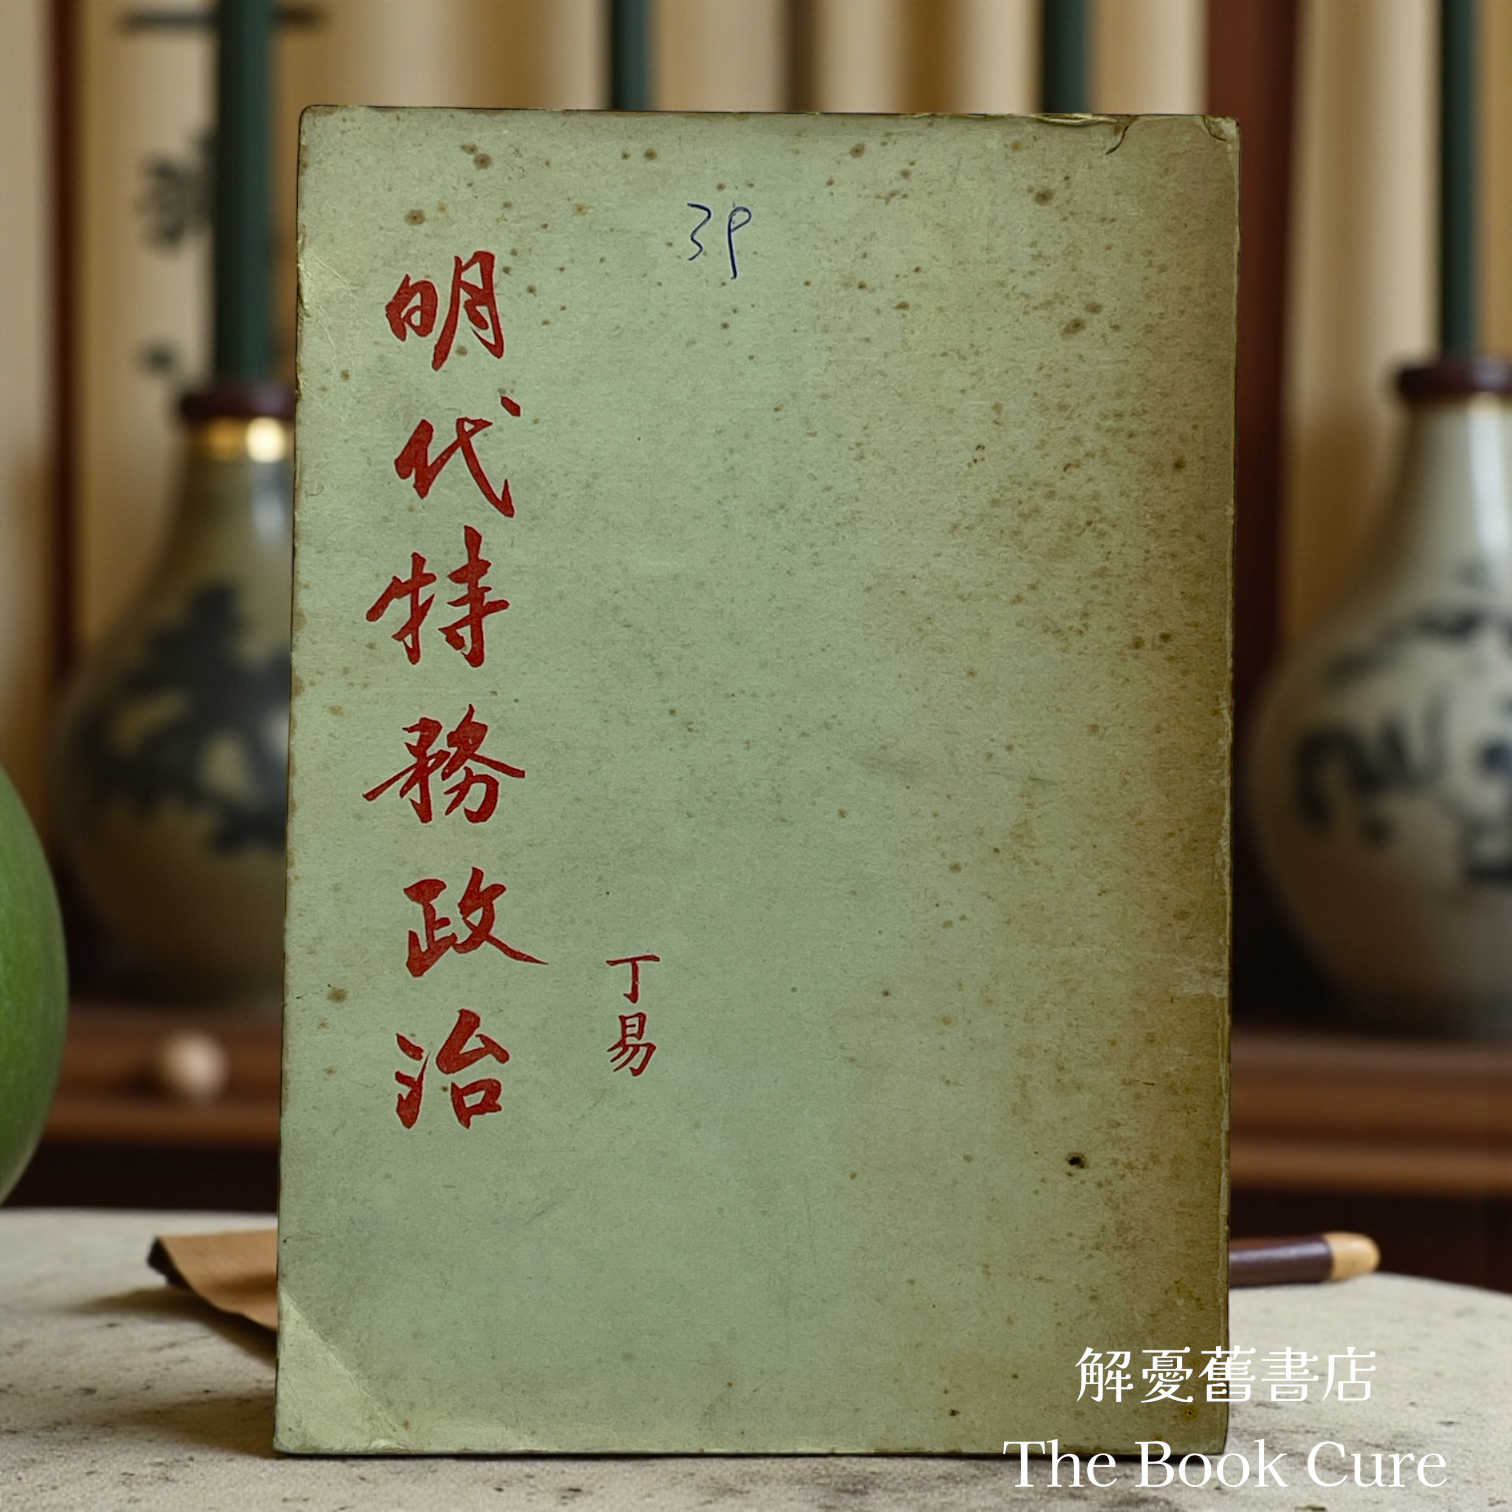 39
明代特務政治
丁易
解憂舊書店
The Book Cure